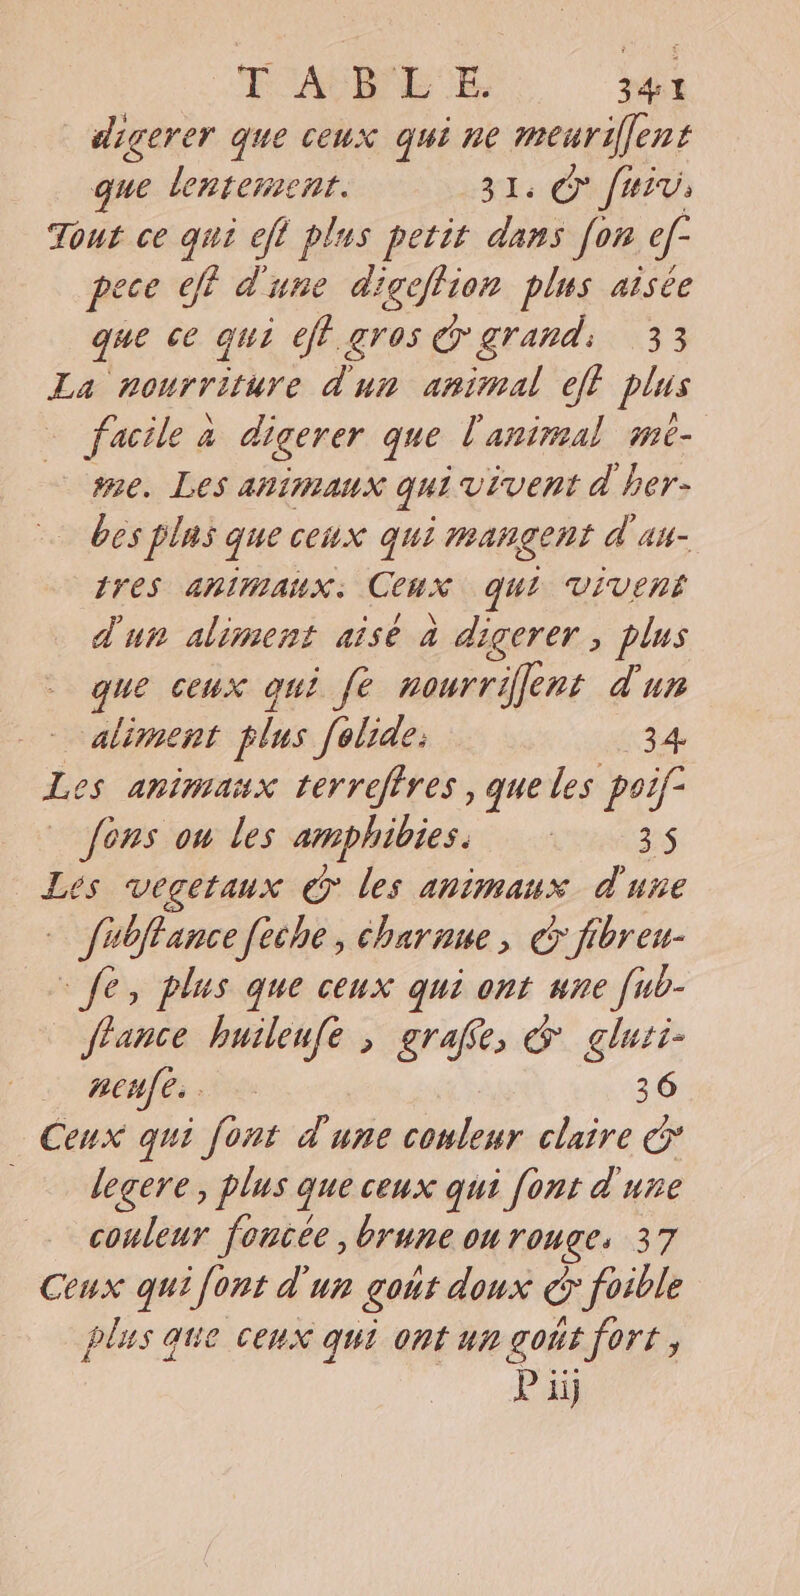 TABLE. 341
digerer que ceux qui ne meuriſſent
que lentement. 31. & ſuiv.
Tout ce qui eſt plus petit dans ſon eſ-
pece eſt d'une digeſtion plus aisée
que ce qui eſt gros & grand. 33
La nourriture d'un animal eſt plus
facile à digerer que l'animal mê-
me. Les animaux qui vivent d'her-
bes plus que ceux qui mangent d'au-
tres animaux. Ceux qui vivent
d'un aliment aisé à digerer, plus
que ceux qui ſe nourriſſent d'un
aliment plus ſolide. 34
Les animaux terreſtres, que les poiſ-
ſons ou les amphibies. 35
Les vegetaux & les animaux d'une
ſubſtance ſeche, charnue, & fibreu-
ſe, plus que ceux qui ont une ſub-
ſtance huileuſe, graſſe, & gluti-
neuſe. 36
Ceux qui ſont d'une couleur claire &
legere, plus que ceux qui ſont d'une
couleur foncée, brune ou rouge. 37
Ceux qui ſont d'un goût doux & foible
plus que ceux qui ont un goût fort,
P iij